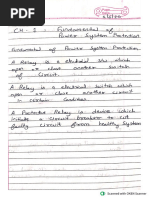 CH - 1 : Fundamental of
Power System Protection
Fundamental of Power System Protection
A Relay is a electrical
open or close another
of Circuit.
A Relay is a electrical switch which
open or close another
in certain condition.
A Protective Relay is device which
initiate a Circuit breaker to cut
faulty Circuit from healthy System
Scanned with OKEN Scanner